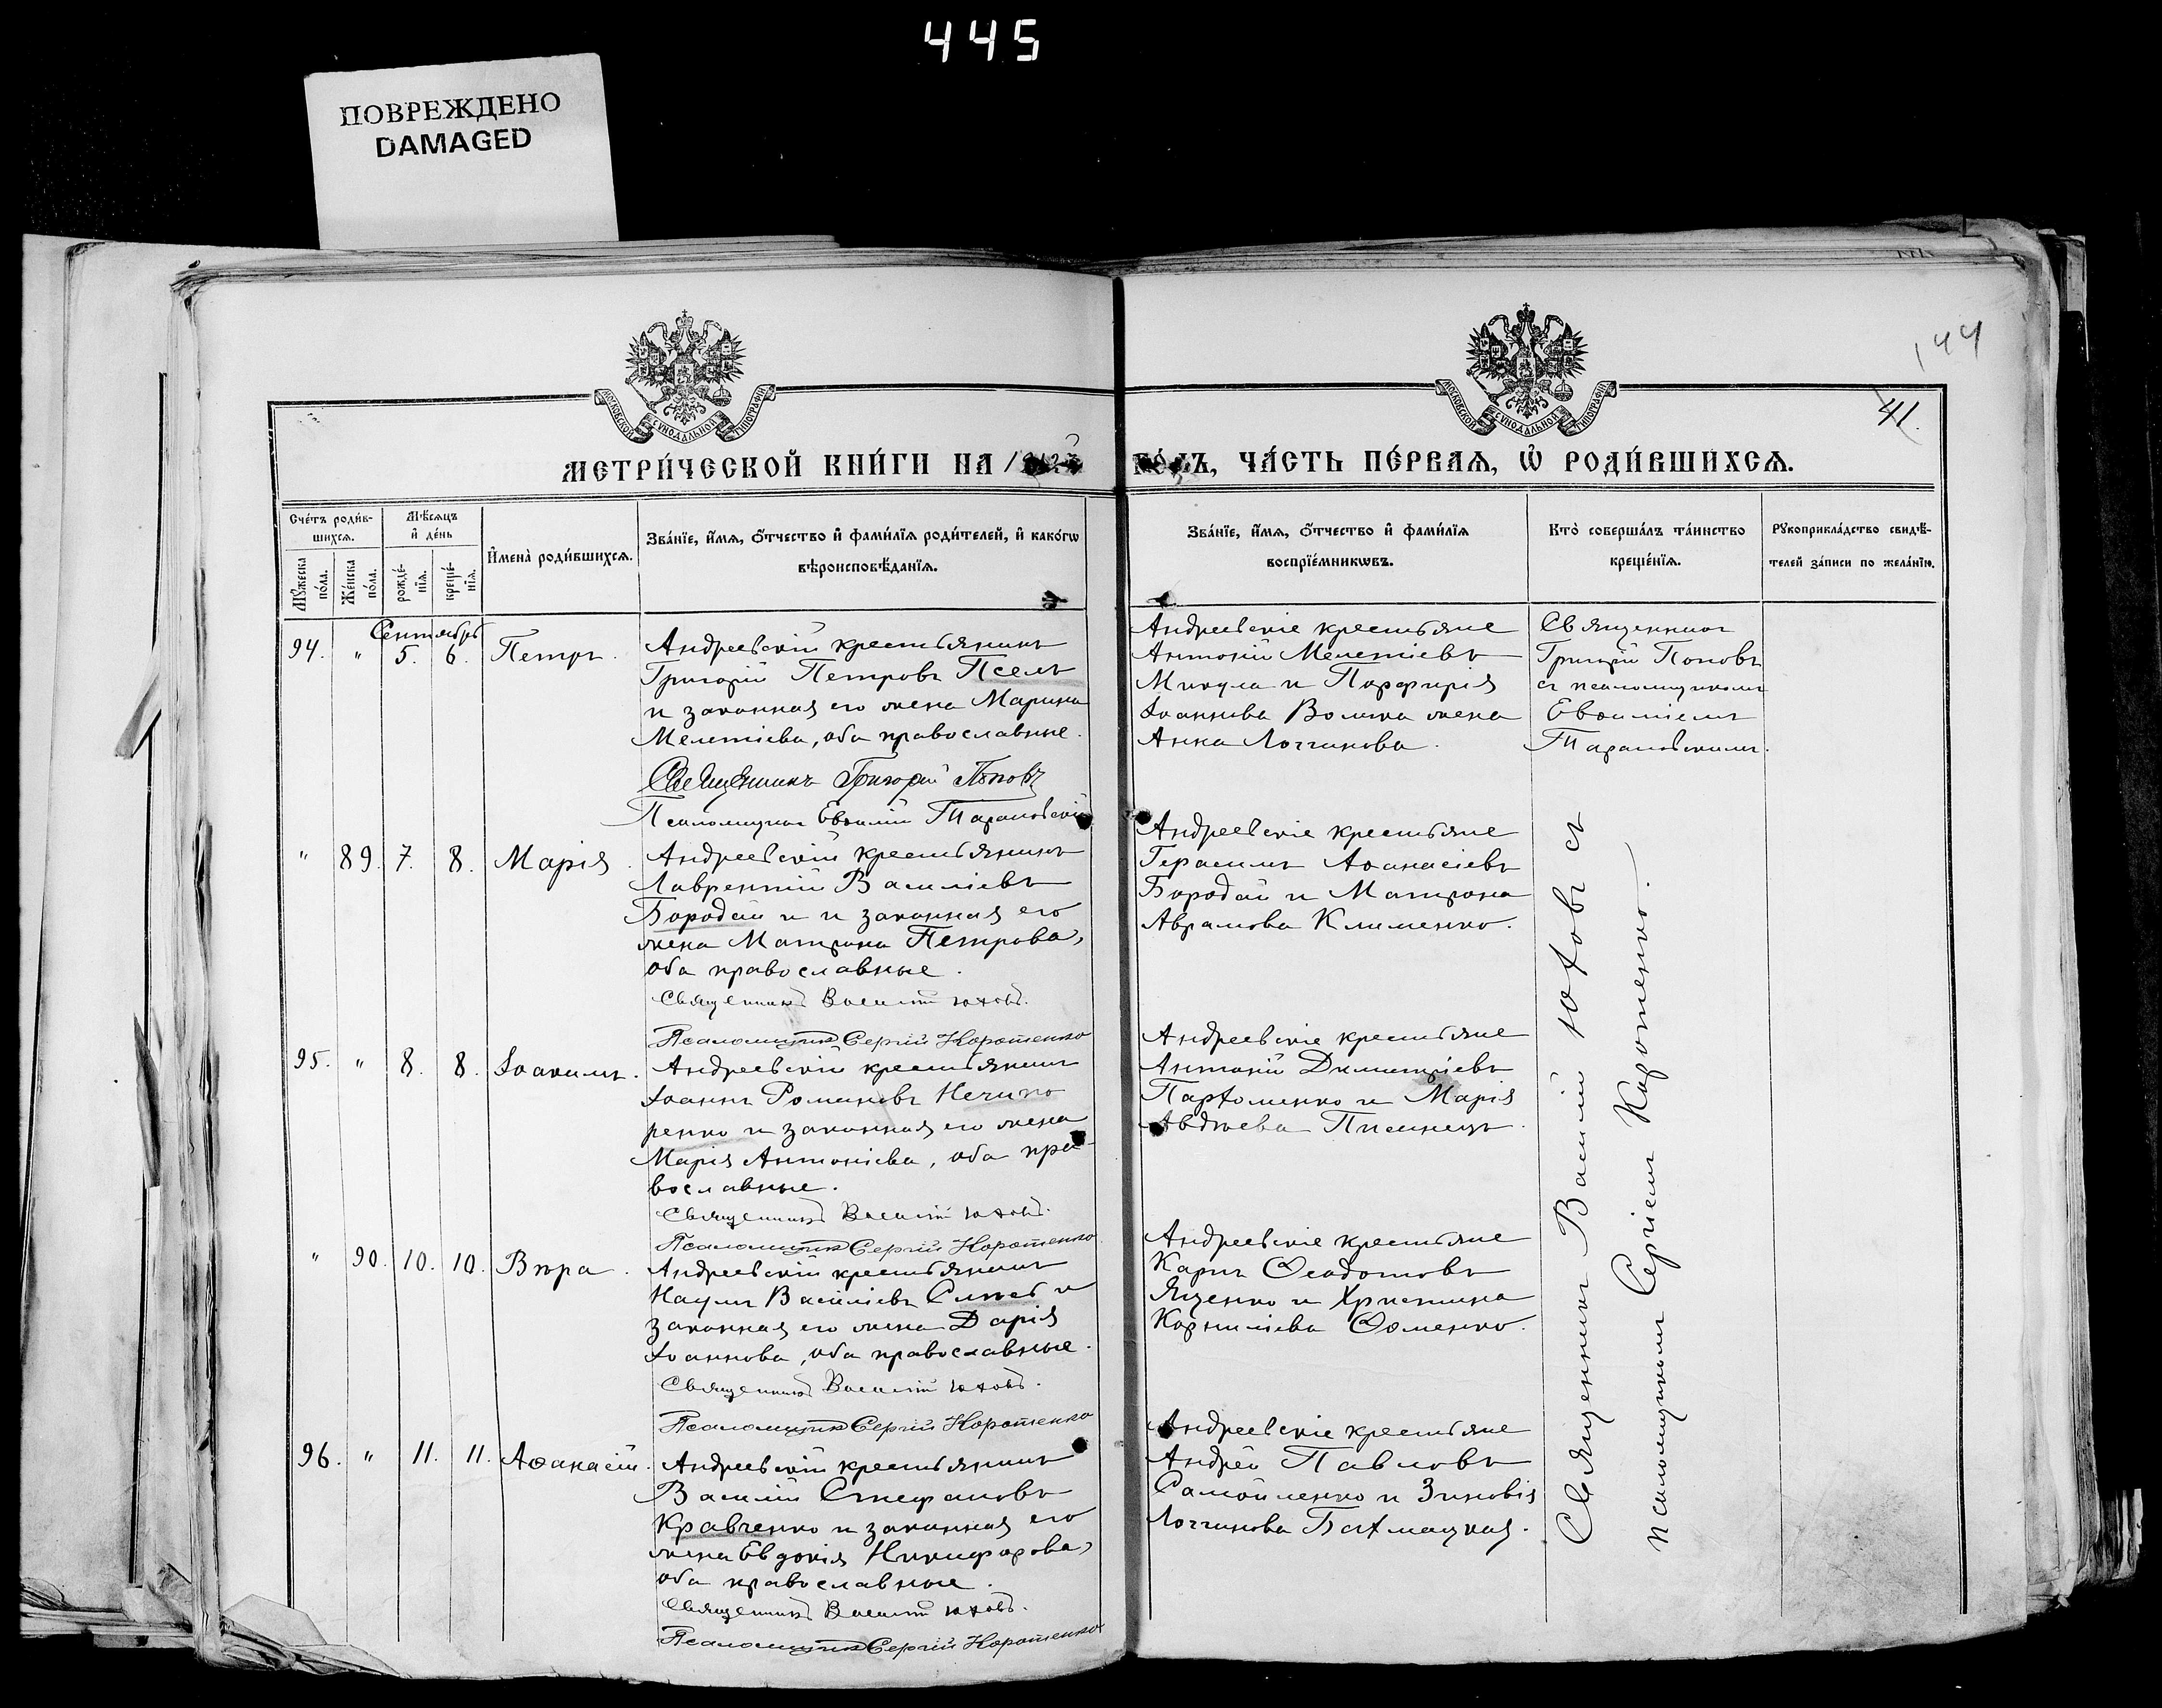 445
ПОВРЕЖДЕНО
DAMAGED
144
41.
МОСКОВСКОЙ СѴНОДАЛЬНОЙ ТИПОГРАФІИ
МОСКОВСКОЙ СѴНОДАЛЬНОЙ ТИПОГРАФІИ
МЕТРИ́ЧЕСКОЙ КНИ́ГИ НА ГО́ДЪ, ЧА́СТЬ ПЕ́РВАЯ, Ѡ҆ РОДИ́ВШИХСЯ.
Сче́тъ роди́в-
шихся.
Мѣ́сяцъ
и҆ де́нь
Мꙋ́жеска по́ла.
Же́нска по́ла.
рожде́-
нїя.
креще́-
нїя.
И҆мена̀ роди́вшихся.
Зва́нїе, и҆́мя, ѻ҆́тчество и҆ фами́лїя роди́телей, и҆ како́гѡ
вѣроисповѣ́данїя.
Зва́нїе, и҆́мя, ѻ҆́тчество и҆ фами́лїя
воспрїе́мникѡвъ.
Кто̀ соверша́лъ та́инство
креще́нїя.
Рꙋкоприкла́дство свидѣ́-
телей за́писи по жела́нїю.
Сентябрь
94. " 5. 6. Петръ.
Андреевскій крестьянинъ
Григорій Петровъ Пселъ
и законная его жена Марина
Мелетіева, оба православные.
Священникъ Григорій Поповъ
Псаломщикъ Евѳимій Тарановскій
Андреевскіе крестьяне
Антоній Мелетіевъ
Микула и Порфирія
Іоаннова Волика жена
Анна Логгинова.
Священникъ
Григорій Поповъ
съ псаломщикомъ
Евѳиміемъ
Тарановскимъ.
" 89. 7. 8. Марія.
Андреевскій крестьянинъ
Лаврентій Василіевъ
Бородай и и законная его
жена Матрона Петрова,
оба православные.
Священникъ Василій Юховъ.
Псаломщикъ Сергій Коротенко
Андреевскіе крестьяне
Герасимъ Аѳанасіевъ
Бородай и Матрона
Аврамова Клименко.
95. " 8. 8. Іоакимъ.
Андреевскій крестьянинъ
Іоаннъ Романовъ Нечипо
ренко и законная его жена
Марія Антоніева, оба пра-
вославные.
Священникъ Василій Юховъ.
Псаломщикъ Сергій Коротенко
Андреевскіе крестьяне
Антоній Димитріевъ
Пархоменко и Марія
Авдѣева Писинецъ.
" 90. 10. 10. Вѣра.
Андреевскій крестьянинъ
Наумъ Василіевъ и
законная его жена Дарія
Іоаннова, оба православные.
Священникъ Василій Юховъ.
Псаломщикъ Сергій Коротенко
Андреевскіе крестьяне
Карпъ Ѳеодотовъ
Яценко и Христина
Корниліева Ѳоменко.
96. " 11. 11. Аѳанасій.
Андреевскій крестьянинъ
Василій Стефановъ
Кравченко и законная его
жена Евдокія Никифорова,
оба православные.
Священникъ Василій Юховъ.
Псаломщикъ Сергій Коротенко
Андреевскіе крестьяне
Андрей Павловъ
Самойленко и Зиновія
Логгинова Бахмацкая.
Священникъ Василій Юховъ съ
псаломщикомъ Сергіемъ Коротенко.